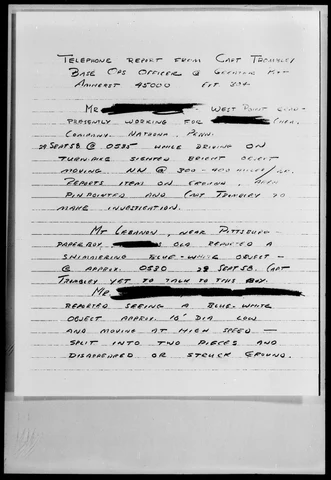 TELEPHONE REPORT FROM CAPT TROMBLEY
BASE OPS OFFICER @ GREATER PITT
AMHERST 45000 EXT 304
MR WEST POINT GRAD -
PRESENTLY WORKING FOR CHEM.
COMPANY NATRONA, PENN.
28 SEPT 58 @ 0525 WHILE DRIVING ON
TURNPIKE SIGHTED BRIGHT OBJECT
MOVING NN @ 300 - 400 MILES/HR.
REPORTS ITEM ON GROUND. AREA
PIN POINTED AND CAPT TROMBLEY TO
MAKE INVESTIGATION.
MT LEBANON, NEAR PITTSBURG
PAPERBOY OLD REPORTED A
SHIMMERING BLUE-WHITE OBJECT -
@ APPROX. 0530 28 SEPT 58. CAPT
TROMBLEY YET TO TALK TO THIS BOY.
MR
REPORTED SEEING A BLUE-WHITE
OBJECT APPROX. 10' DIA LOW
AND MOVING AT HIGH SPEED —
SPLIT INTO TWO PIECES AND
DISAPPEARED OR STRUCK GROUND.